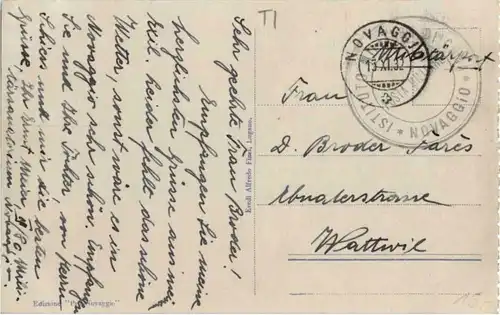 Sehr geehrte Frau Broder!
Empfangen Sie meine
herzlichsten Grüsse aus mei
Exil. Leider fehlt das schöne
Wetter, sonst wäre es in
Novaggio sehr schön. Empfangen
Sie und Ihre Tochter, von Herrn
und mir die besten
Grüsse, Ihr Ernst
Edizione
Eredi Alfredo Finzi, Lugano.
T1
NOVAGGIO
13.XI.32
ISTITUTO * NOVAGGIO *
Militärpost
Frau
D. Broder
Ebnaterstrasse
Wattwil